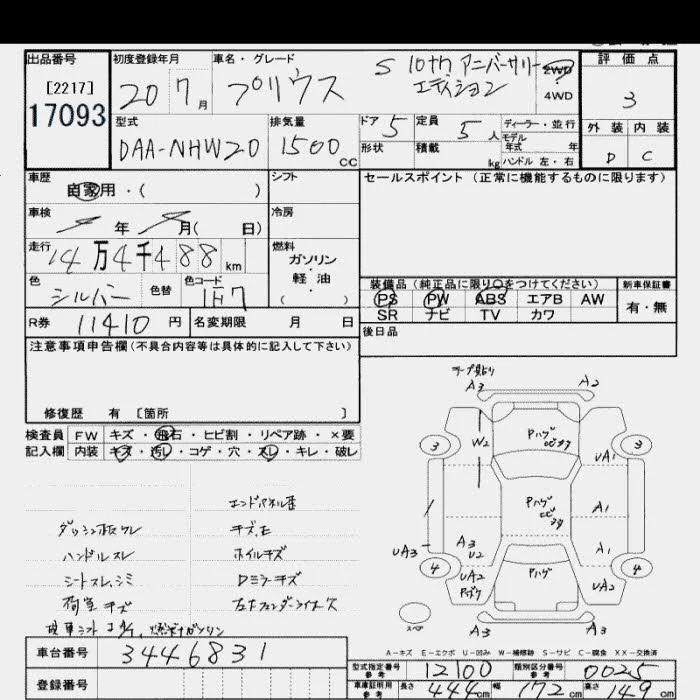 出品番号
[2217]
17093
初度登録年月
20 7月
車名・グレード
プリウス
S 10thアニバーサリー
エディション
2WD
4WD
評価点
3
外装 内装
D C
型式
DAA-NHW20
排気量
1500cc
ドア 5
定員 5人
形状
積載 kg
ディーラー・並行
モデル年式 年
ハンドル 左・右
車歴
自家用・( )
シフト
セールスポイント(正常に機能するものに限ります)
車検 年 月( 日)
冷房
走行 14万4千488km
燃料
ガソリン
・
軽油
( )
色 シルバー
色替
色コード 1F7
装備品(純正品に限り○をつけてください)
PS PW ABS エアB AW
SR ナビ TV カワ
新車保証書
有・無
R券 11410円
名変期限 月 日
後日品
注意事項申告欄(不具合内容等は具体的に記入して下さい)
修復歴 有 [箇所 ]
検査員記入欄
FW キズ・飛石・ヒビ割・リペア跡・×要
内装 キズ・汚レ・コゲ・穴・スレ・キレ・破レ
ハンドルスレ
シートスレ、シミ
荷室キズ
キズ、E
ホイルキズ
Dミラーキズ
テープ貼り
A3 A2
3 3
W2
Pハゲ
UA1
Pハゲ
A1
A1
UA3
A3
U2
4 4
UA2
Pハゲ
UA2
スペア
A3 A3
A-キズ E-エクボ U-凹み W-補修跡 S-サビ C-腐食 XX-交換済
車台番号 3446831
登録番号
型式指定番号 参考 12100
類別区分番号 参考 0025
車庫証明用 参考 長さ 444cm 幅 172cm 高さ 149cm